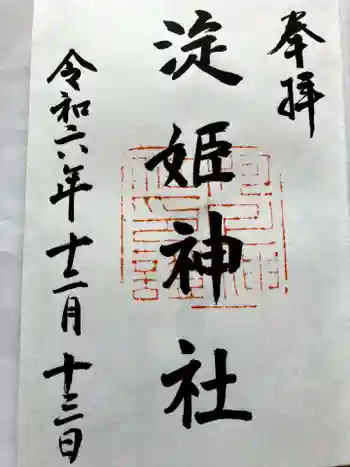 奉拝
淀姫神社
令和六年十二月十三日